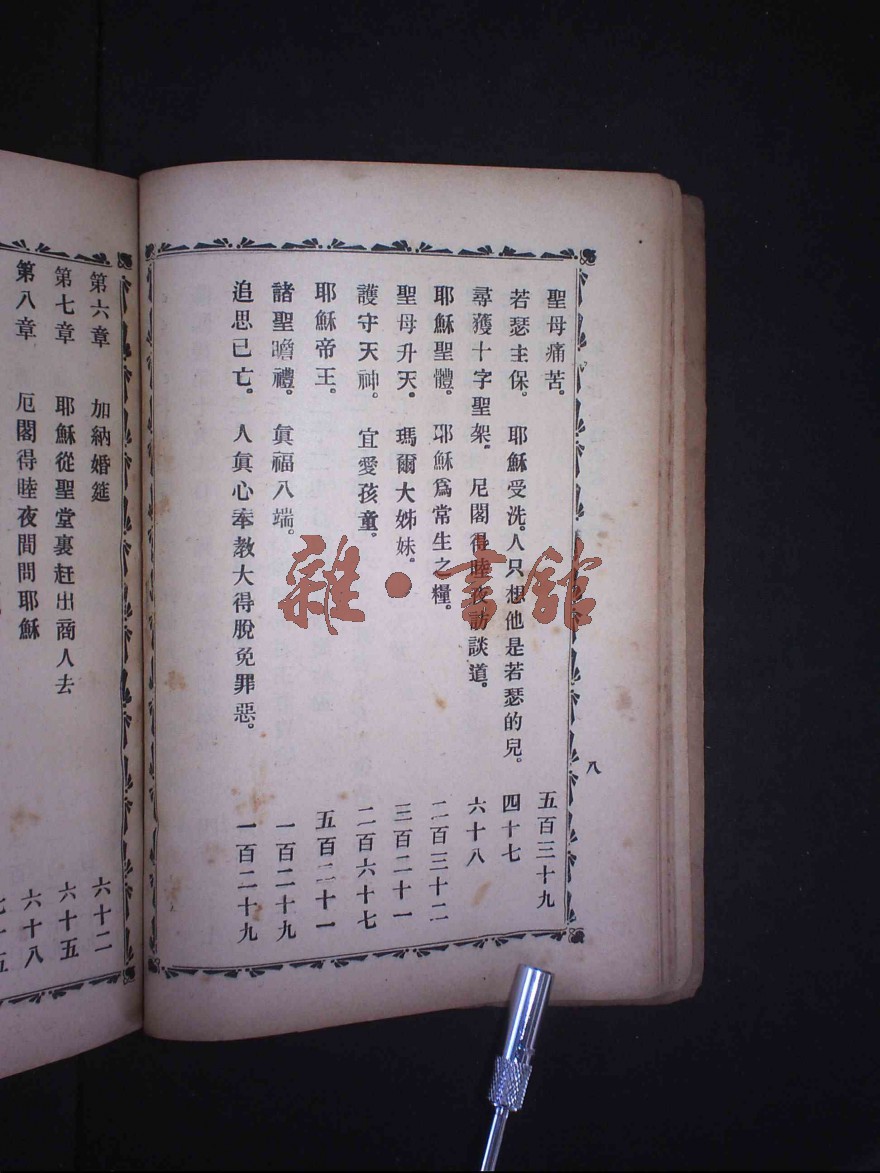 聖母痛苦。 五百三十九
若瑟主保。 耶穌受洗。人只想他是若瑟的兒。 四十七
尋獲十字聖架。 尼閣得睦夜訪談道。 六十八
耶穌聖體。 耶穌爲常生之糧。 二百三十二
聖母升天。 瑪爾大姊妹。 三百二十一
護守天神。 宜愛孩童。 二百六十七
耶穌帝王。 五百二十一
諸聖瞻禮。 眞福八端。 一百二十九
追思已亡。 人眞心奉教大得脫免罪惡。 一百二十九
八
第六章 加納婚筵 六十二
第七章 耶穌從聖堂裏赶出商人去 六十五
第八章 厄閣得睦夜間問耶穌 六十八
七十五
雜·書館